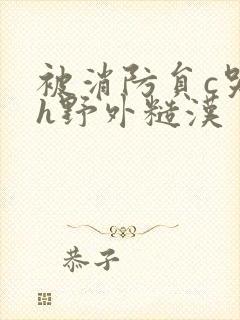 被消防员c哭
h野外糙漢
恭子